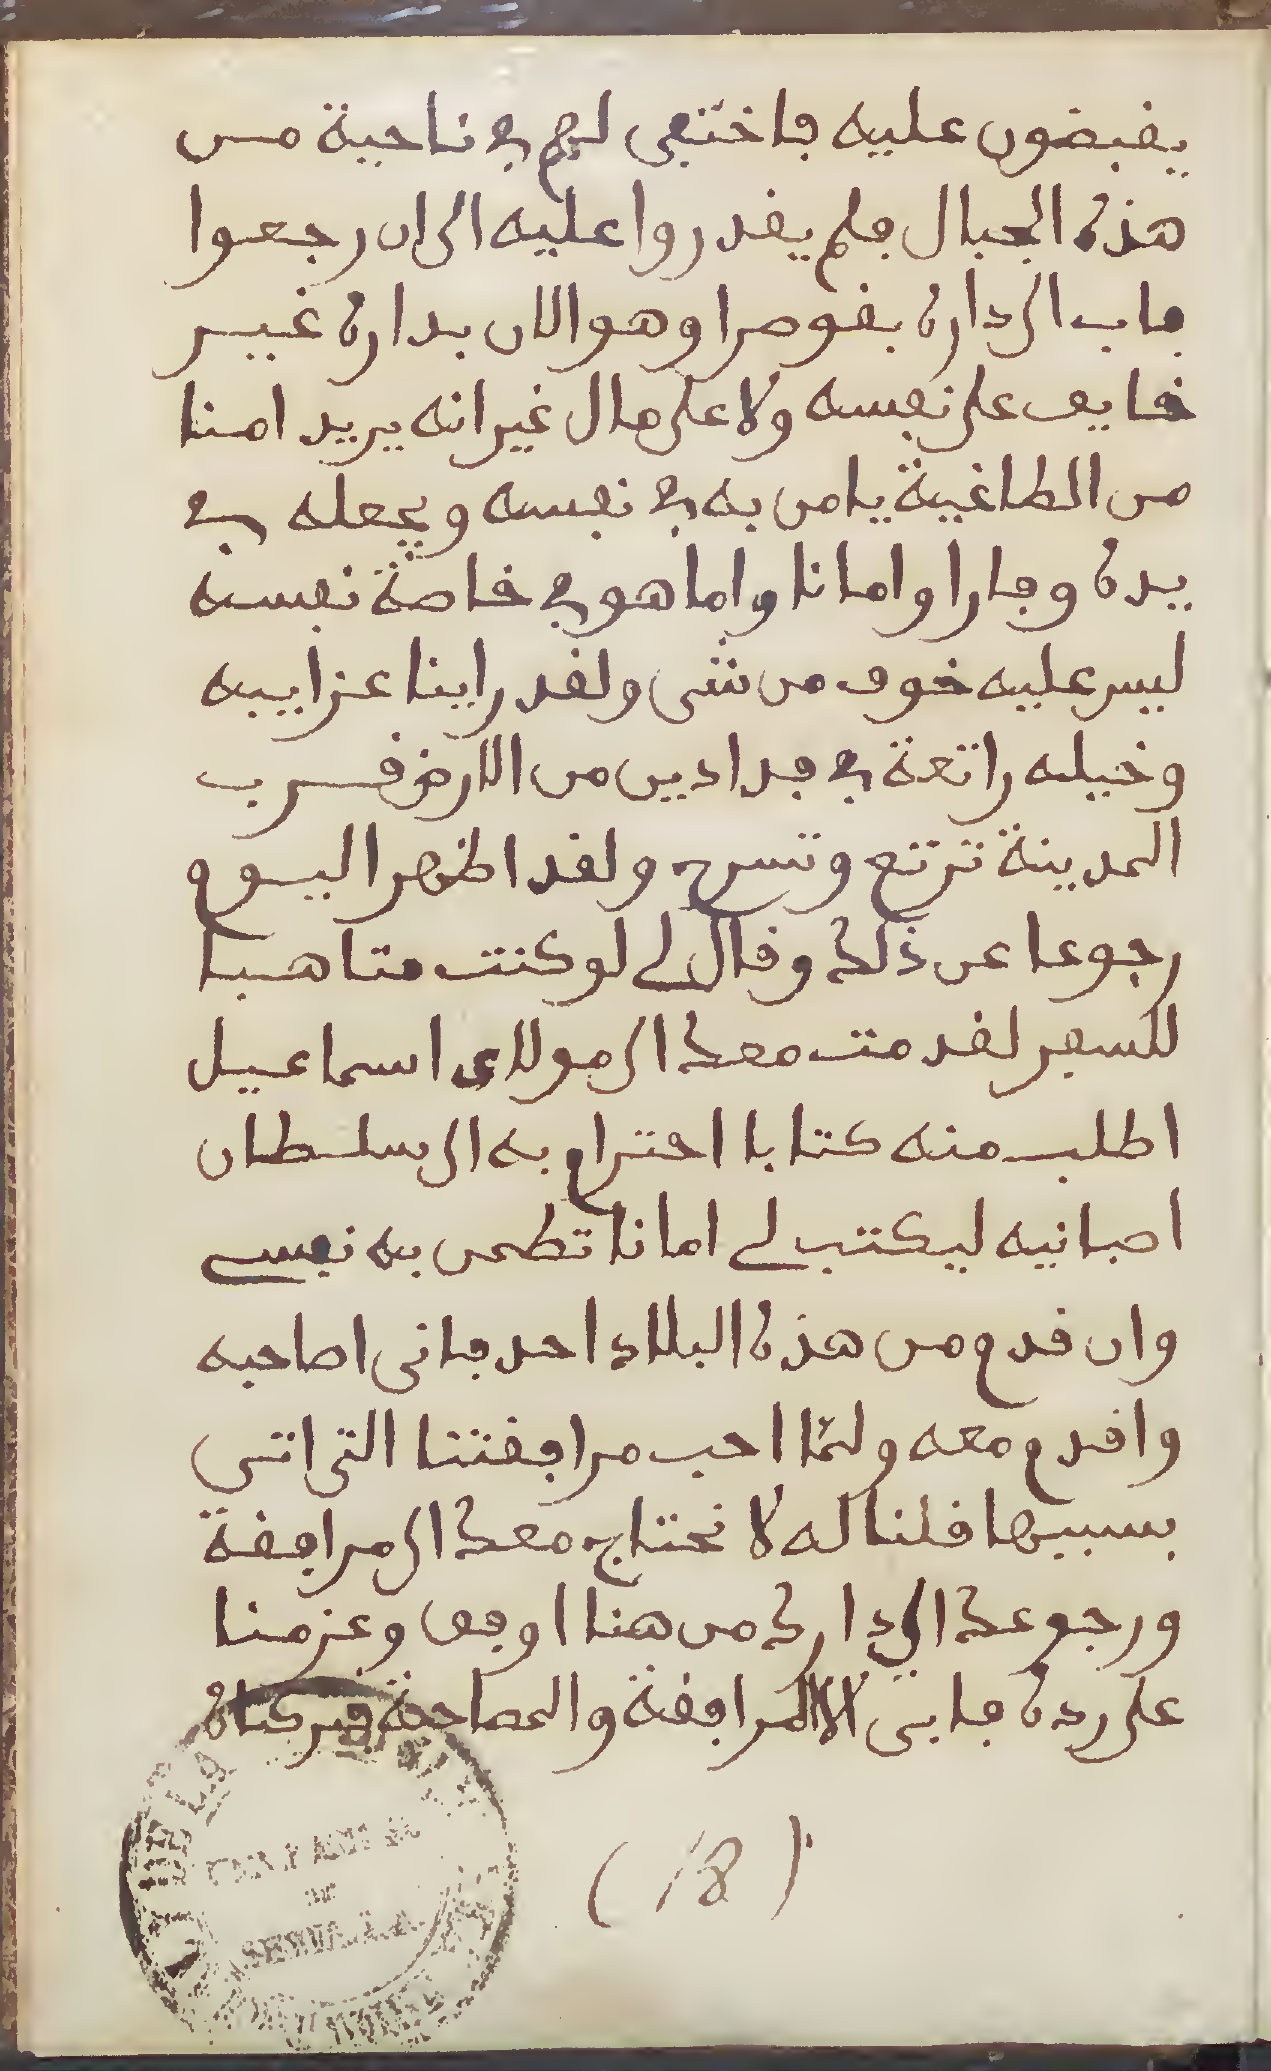 يقبضون عليه فاختفى لهم في ناحية من
هذه الجبال فلم يقدروا عليه الى ان رجعوا
فاب الى داره بقوصرا وهو الان بداره غير
خايف على نفسه ولا على مال غير انه يريد امنا
من الطاغية يامن به في نفسه ويجعله في
يده وفارا وامانا واما هو في خاصة نفسه
ليس عليه خوف من شي ولقد راينا عزايبه
وخيله راتعة في فدادين من الارض قرب
المدينة ترتع وتسرح ولقد اظهر اليوم
رجوعا عن ذلك وقال لي لو كنت متاهبا
للسفر لقدمت معك الى مولاي اسماعيل
اطلب منه كتابا احترام به الى سلطان
اصبانيه ليكتب لي امانا تطمن به نفسي
وان قدم من هذه البلاد احد فاني اصاحبه
واقدم معه ولما احب مرافقتنا التي اتى
بسببها قلنا له لا نحتاج معك الى مرافقة
ورجوعك الى دارك من هنا اوفق وعزمنا
على رده فابى الا المرافقة والمصاحبة فتركناه
(18)